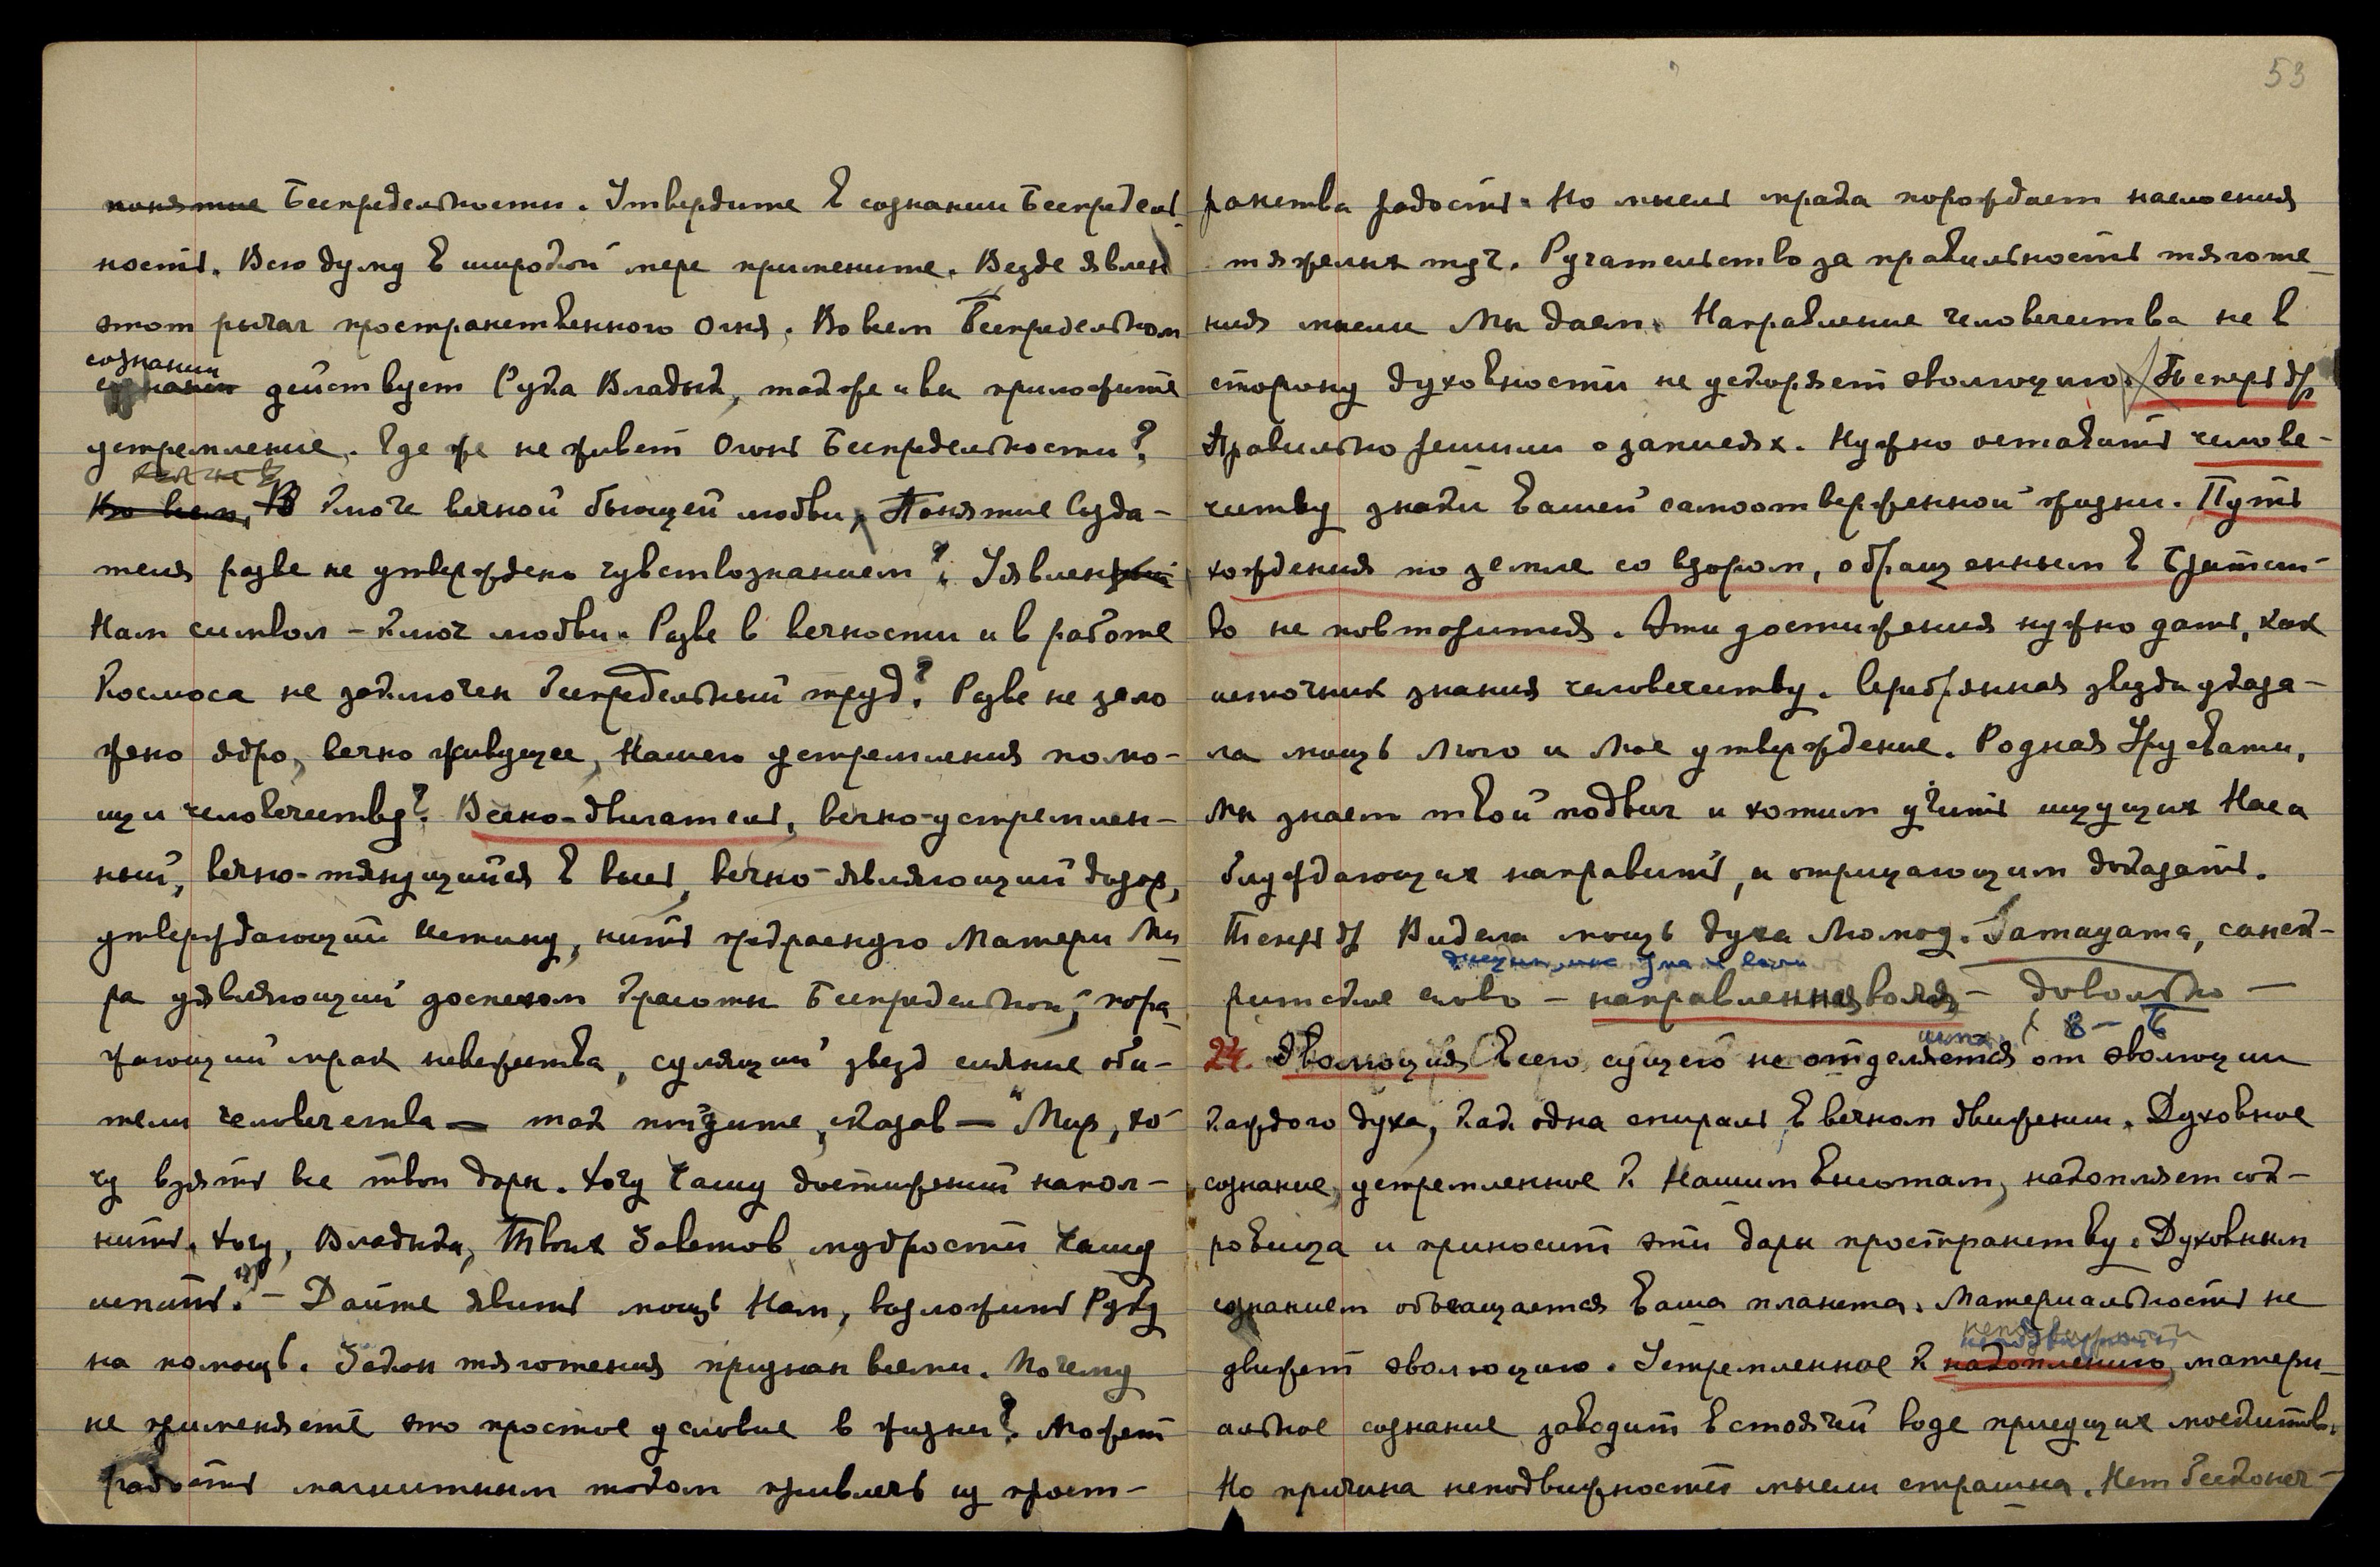 понятие Беспредельности. Утвердите в сознании Беспредель-
ность. Всю думу в широкой мере примените. Везде явлен
этот рычаг пространственного Огня. Во всем Беспредельном
сознании
действует Рука Владык, также и вы приложите
устремление. Где же не живет Огонь Беспредельности?
Во всем, В ключе вечной бьющей любви, Понятие Созда-
теля разве не утверждено чувствознанием? Уявлен
Нам символ – ключ любви. Разве в вечности и в работе
Космоса не заключен беспредельный труд? Разве не зало
жено ядро, вечно живущее, Нашего устремления помо-
щи человечеству? Вечно-двигатель, вечно-устремлен-
ный, вечно-тянущийся в высь, вечно-являющий дозор,
утверждающий истину, нить прекрасную Матери Ми
ра уявляющий доспехом красоты Беспредельной, пора
жающий мрак невежества, сулящий звезд сияние оби-
тели человечества — так пойдите, сказав — "Мир, хо
чу взять все твои дары. Хочу Чашу достижений напол-
нить. Хочу, Владыка, Твоих Заветов мудрости Чашу
испить." – Дайте явить мощь Нам, возложить Руку
на помощь. Закон тяготения признан всеми. Почему
не применяете это простое условие в жизни? Может
радость магнитным током привлечь из прост-
53
ранства радость. Но мысль мрака порождает наслоения
тяжелых туч. Ручательство за правильность тяготе-
ния мысли Мы даем. Направление человечества не в
сторону духовности не ускоряет эволюцию. Теперь др
Правильно решили о записях. Нужно оставить челове-
честву знаки вашей самоотверженной жизни. Путь
хождения по земле со взором, обращенным в
ко не повторится. Эти достижения нужно дать, как
источник знания человечеству. Серебрянная звезда указа-
ла мощь Мою и Мое утверждение. Родная Урусвати,
Мы знаем твой подвиг и хотим учить ищущих Нас а
блуждающих направить, и отрицающим доказать.
Теперь др Видела мощь духа Мою Татагата, санск-
ритское слово – направленная воля – довольно –
24. Эволюция всего сущего не отделяется от эволюции
каждого духа, как одна спираль в вечном движении. Духовное
сознание, устремленное к Нашим высотам, накопляет сок-
ровища и приносит эти дары пространству. Духовным
сознанием объединяется ваша планета. Материальность не
движет эволюцию. Устремленное к накоплению матери-
альное сознание заводит в стоячей воде прищащих
Но причина неподвижности мысли страшна. Нет бесконеч-